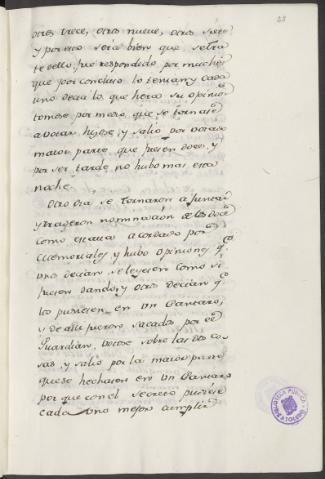 otros trece, otros nueve, otros siete
y por eso seria bien que se tra
te dello, fue respondido por muchos
que por concluso lo tenian, y cada
uno decia lo que hera su opinio
tomose por medio que se tornase
a votar hizose, y salio por votos
maior parte que fuesen doce, y
por ser tarde no hubo mas esta
noche.
Otro dia se tornaron a juntar
y trageron nominacion de los doce
como estava acordado por
memoriales y hubo opiniones q.e
unos decian se leyesen como si
fuesen dando, y otros decian q.e
los pusiesen en un cantaro,
y de alli fuesen sacados por el
Guardian, votose sobre las dos co
sas, y salio por la maior parte
que se hechasen en un cantaro
por que con el secreto pudiese
cada uno mejor cumplir